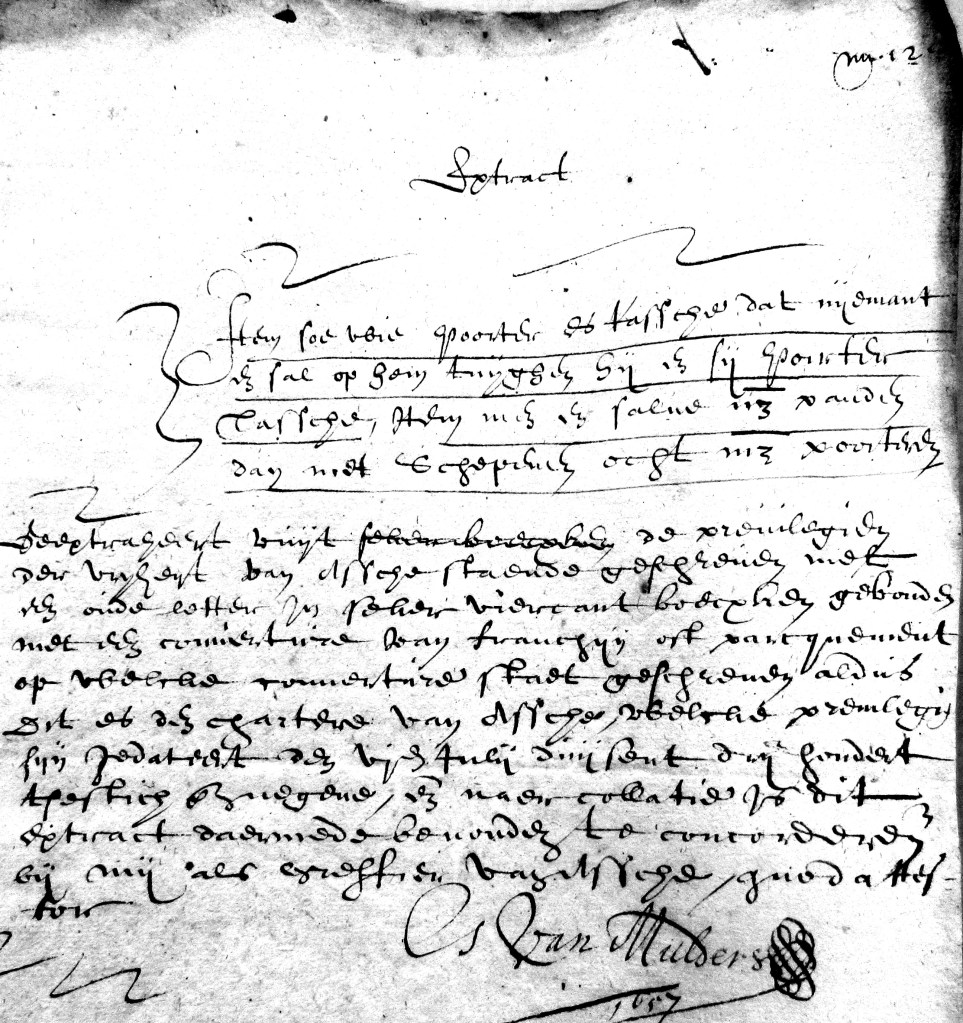 No. 12
Extract
Item soe wie Poorter es tassche dat nyemant
en sal op hem tuyghen hy en sy Poorter
Tassche, Item men en salne nz panden
dan met Schepenen ocht mz poorteren
Geextraheert vuyt de previlegien
der vryheyt van Assche staende geschreven met
een oude letter in seker viercant boecxken gebonden
met een couverture van franchyn oft parcquement
op welcke couverture staet geschreven aldus
Dit es den chartere van Assche, welcke previlegie
syn gedateert den vyen July duysent dry hondert
tsestich, en naer collatie is dit
extract daermede bevonden te concorderen
by my als greffier van Assche, quod attes-
tor
Van Mulders
1657